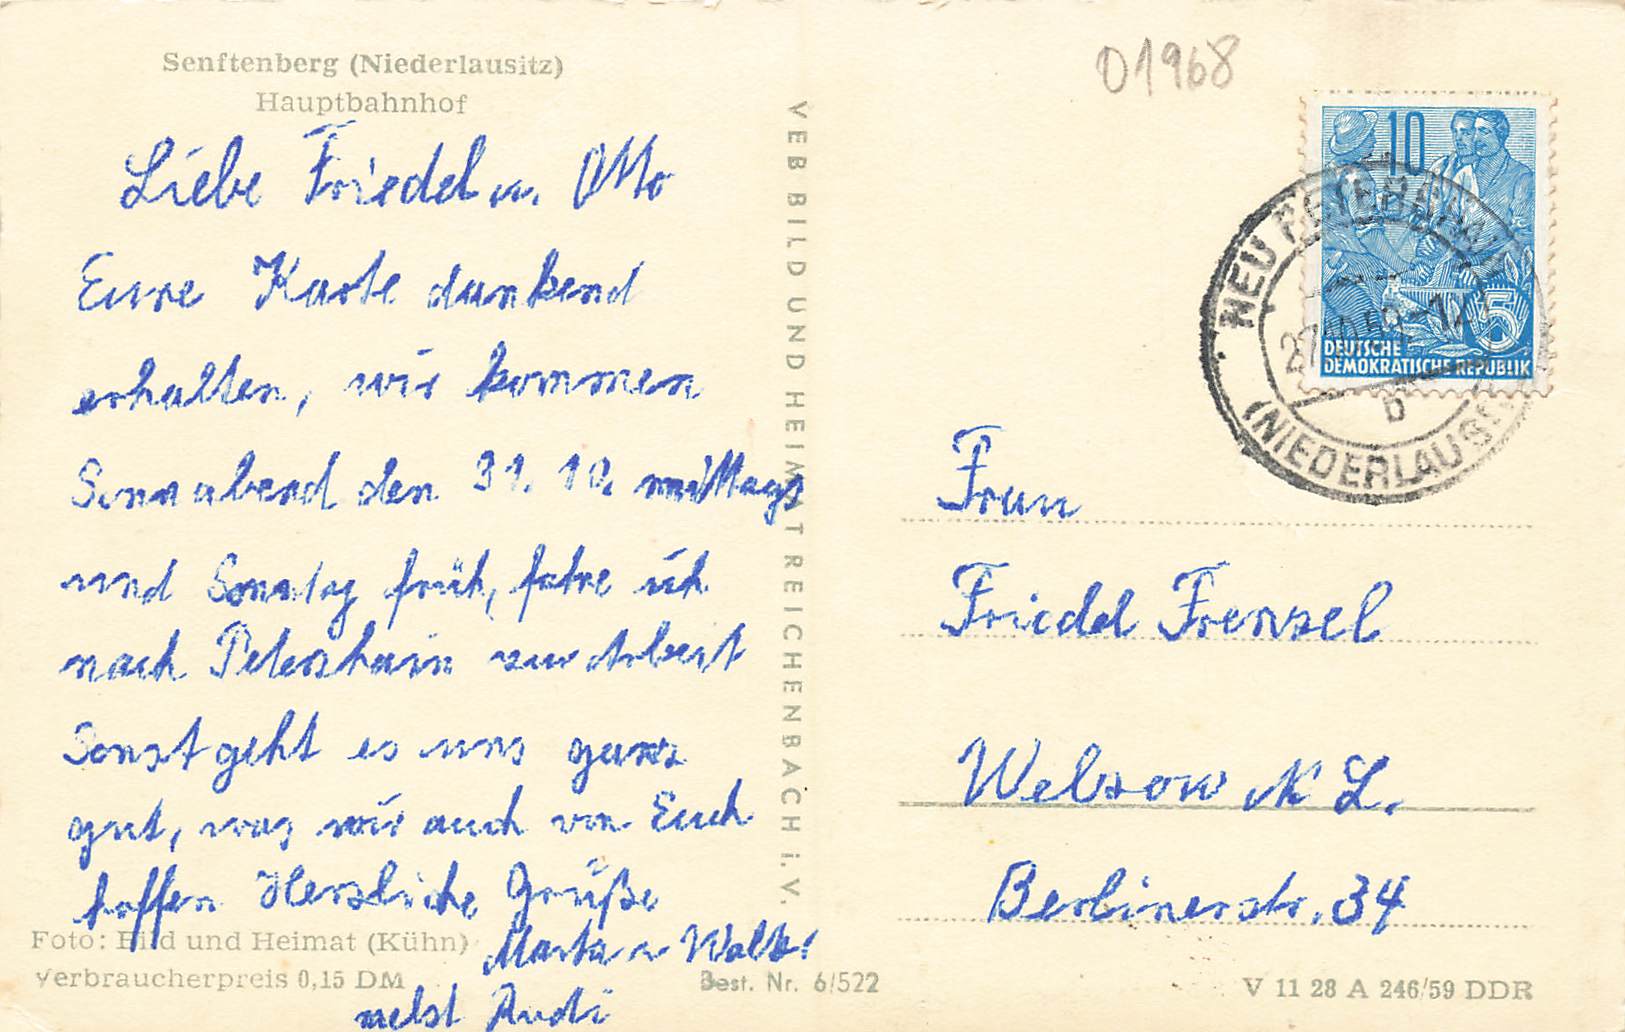 Senftenberg (Niederlausitz)
Hauptbahnhof
Liebe Friedel u. Otto
Eure Karte dankend
erhalten, wir kommen
Sonnabend den 31. 10. mittags
und Sonntag früh, fahre ich
nach Petershain zur Arbeit
Sonst geht es uns ganz
gut, was wir auch von Euch
hoffen Herzliche Grüße
Marta u Walter
nebst Rudi
Foto: Bild und Heimat (Kühn)
Verbraucherpreis 0,15 DM
Best. Nr. 6/522
VEB BILD UND HEIMAT REICHENBACH i. V.
01968
10
5
DEUTSCHE
DEMOKRATISCHE REPUBLIK
NEU PETERSHAIN
b
(NIEDERLAUS
Frau
Friedel Frenzel
Welzow N L.
Berlinerstr. 34
V 11 28 A 246/59 DDR